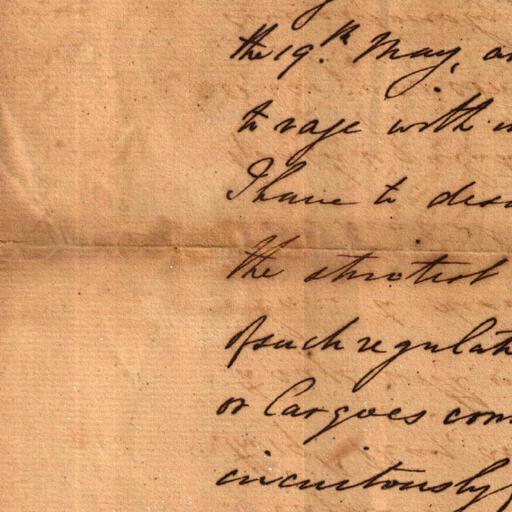 the 19th. May, an
to rage with
I have to desi
the strictest
of such regulati
or Cargoes com
circuitously